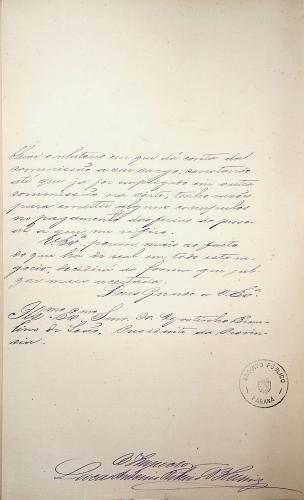 o relatorio em que dá conta da
commissão a seu cargo,
até que ja foi empregado em outra
commissão na côrte, tenho
para emittir alguns
no pagamento das ferias ao pesso-
al a que me refiro.
V. Exª., porém, mais ao facto
do que ha de real em todo este ne-
gocio, decidirá da forma que jul-
gar mais acertada.
Deus Guarde a V. Exª.
Illmo. Exmo. Snr. Dr. Agostinho Erme-
lino de Leão, Presidente da Provin-
cia.
ARCHIVO PUBLICO
PARANÁ